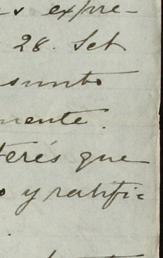 s expre-
28. Set
sunto
mente.
terés que
o y ratifi-